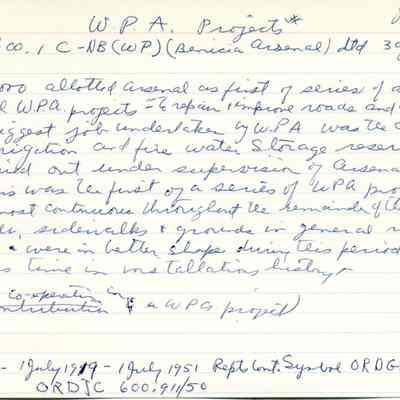 W.P.A. Projects*
00.1 C-NB(WP) (Benicia Arsenal) dtd 3
000 allotted arsenal as first of series of
W.P.A. projects - to repair, improve roads and
ggest job undertaken by WPA was the
rigation and fire water storage reser
ied out under supervision of Arsena
is was the first of a series of WPA pro
most continuous throughout the remainder of th
sidewalks & grounds in general
were in better shape during this period
s time in installations history.
co-operation in
ontribution a WPA project)
- 1 July 1919 - 1 July 1951 Rept Cont. Symbol ORDG
ORDJC 600.911/50